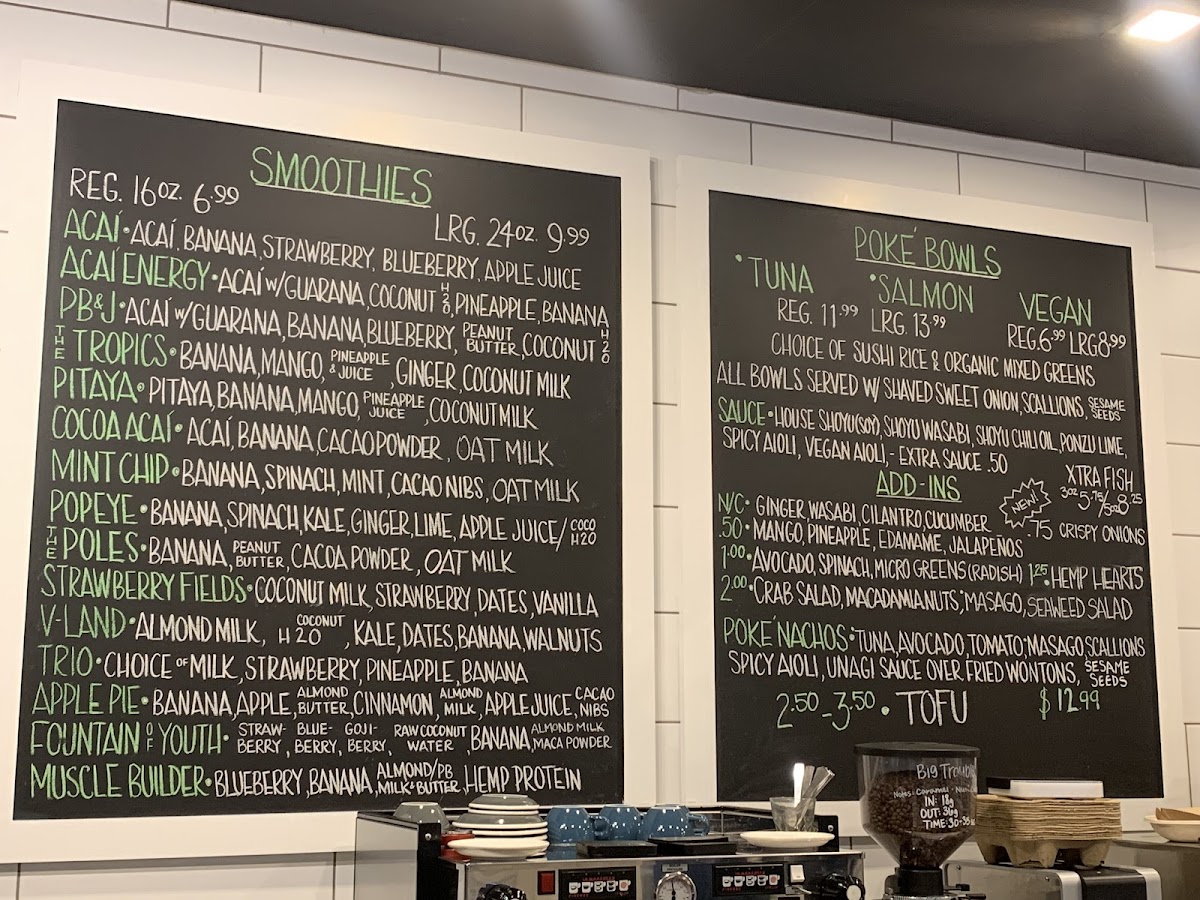 SMOOTHIES
REG. 16OZ. 6.99
LRG. 24OZ. 9.99
ACAÍ • ACAÍ, BANANA, STRAWBERRY, BLUEBERRY, APPLE JUICE
ACAÍ ENERGY • ACAÍ W/GUARANA, COCONUT H2O, PINEAPPLE, BANANA
PB&J • ACAÍ W/GUARANA, BANANA, BLUEBERRY, PEANUT BUTTER, COCONUT H2O
THE TROPICS • BANANA, MANGO, PINEAPPLE & JUICE, GINGER, COCONUT MILK
PITAYA • PITAYA, BANANA, MANGO, PINEAPPLE JUICE, COCONUT MILK
COCOA ACAÍ • ACAÍ, BANANA, CACAO POWDER, OAT MILK
MINT CHIP • BANANA, SPINACH, MINT, CACAO NIBS, OAT MILK
POPEYE • BANANA, SPINACH, KALE, GINGER, LIME, APPLE JUICE/COCO H2O
THE POLES • BANANA, PEANUT BUTTER, CACOA POWDER, OAT MILK
STRAWBERRY FIELDS • COCONUT MILK, STRAWBERRY, DATES, VANILLA
V-LAND • ALMOND MILK, COCONUT H2O, KALE, DATES, BANANA, WALNUTS
TRIO • CHOICE OF MILK, STRAWBERRY, PINEAPPLE, BANANA
APPLE PIE • BANANA, APPLE, ALMOND BUTTER, CINNAMON, ALMOND MILK, APPLE JUICE, CACAO NIBS
FOUNTAIN OF YOUTH • STRAW-BERRY, BLUE-BERRY, GOJI-BERRY, RAW COCONUT WATER, BANANA, ALMOND MILK, MACA POWDER
MUSCLE BUILDER • BLUEBERRY, BANANA, ALMOND/PB MILK & BUTTER, HEMP PROTEIN
POKÉ BOWLS
• TUNA • SALMON VEGAN
REG. 11.99 LRG. 13.99 REG. 6.99 LRG 8.99
CHOICE OF SUSHI RICE & ORGANIC MIXED GREENS
ALL BOWLS SERVED W/ SHAVED SWEET ONION, SCALLIONS, SESAME SEEDS
SAUCE • HOUSE SHOYU (SOY), SHOYU WASABI, SHOYU CHILI OIL, PONZU LIME,
SPICY AIOLI, VEGAN AIOLI, - EXTRA SAUCE .50
XTRA FISH
3OZ 5.75/5OZ 8.25
ADD-INS
N/C • GINGER, WASABI, CILANTRO, CUCUMBER
NEW!
.75 CRISPY ONIONS
.50 • MANGO, PINEAPPLE, EDAMAME, JALAPEÑOS
1.00 • AVOCADO, SPINACH, MICRO GREENS (RADISH) 1.25 • HEMP HEARTS
2.00 • CRAB SALAD, MACADAMIA NUTS, *MASAGO, SEAWEED SALAD
POKÉ NACHOS • TUNA, AVOCADO, TOMATO, *MASAGO, SCALLIONS
SPICY AIOLI, UNAGI SAUCE OVER FRIED WONTONS, SESAME SEEDS
2.50 - 3.50 • TOFU $12.99
Big Trouble
Notes - Caramel -
IN: 18g
OUT: 36g
TIME: 30-35